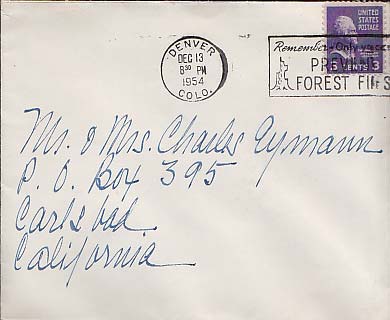 DENVER
DEC 13
8 30 PM
1954
COLO.
UNITED STATES
POSTAGE
3 CENTS 3
Remember - Only
PREVENT
FOREST FIRES
Mr. & Mrs. Charles Eymann
P. O. Box 395
Carlsbad
California